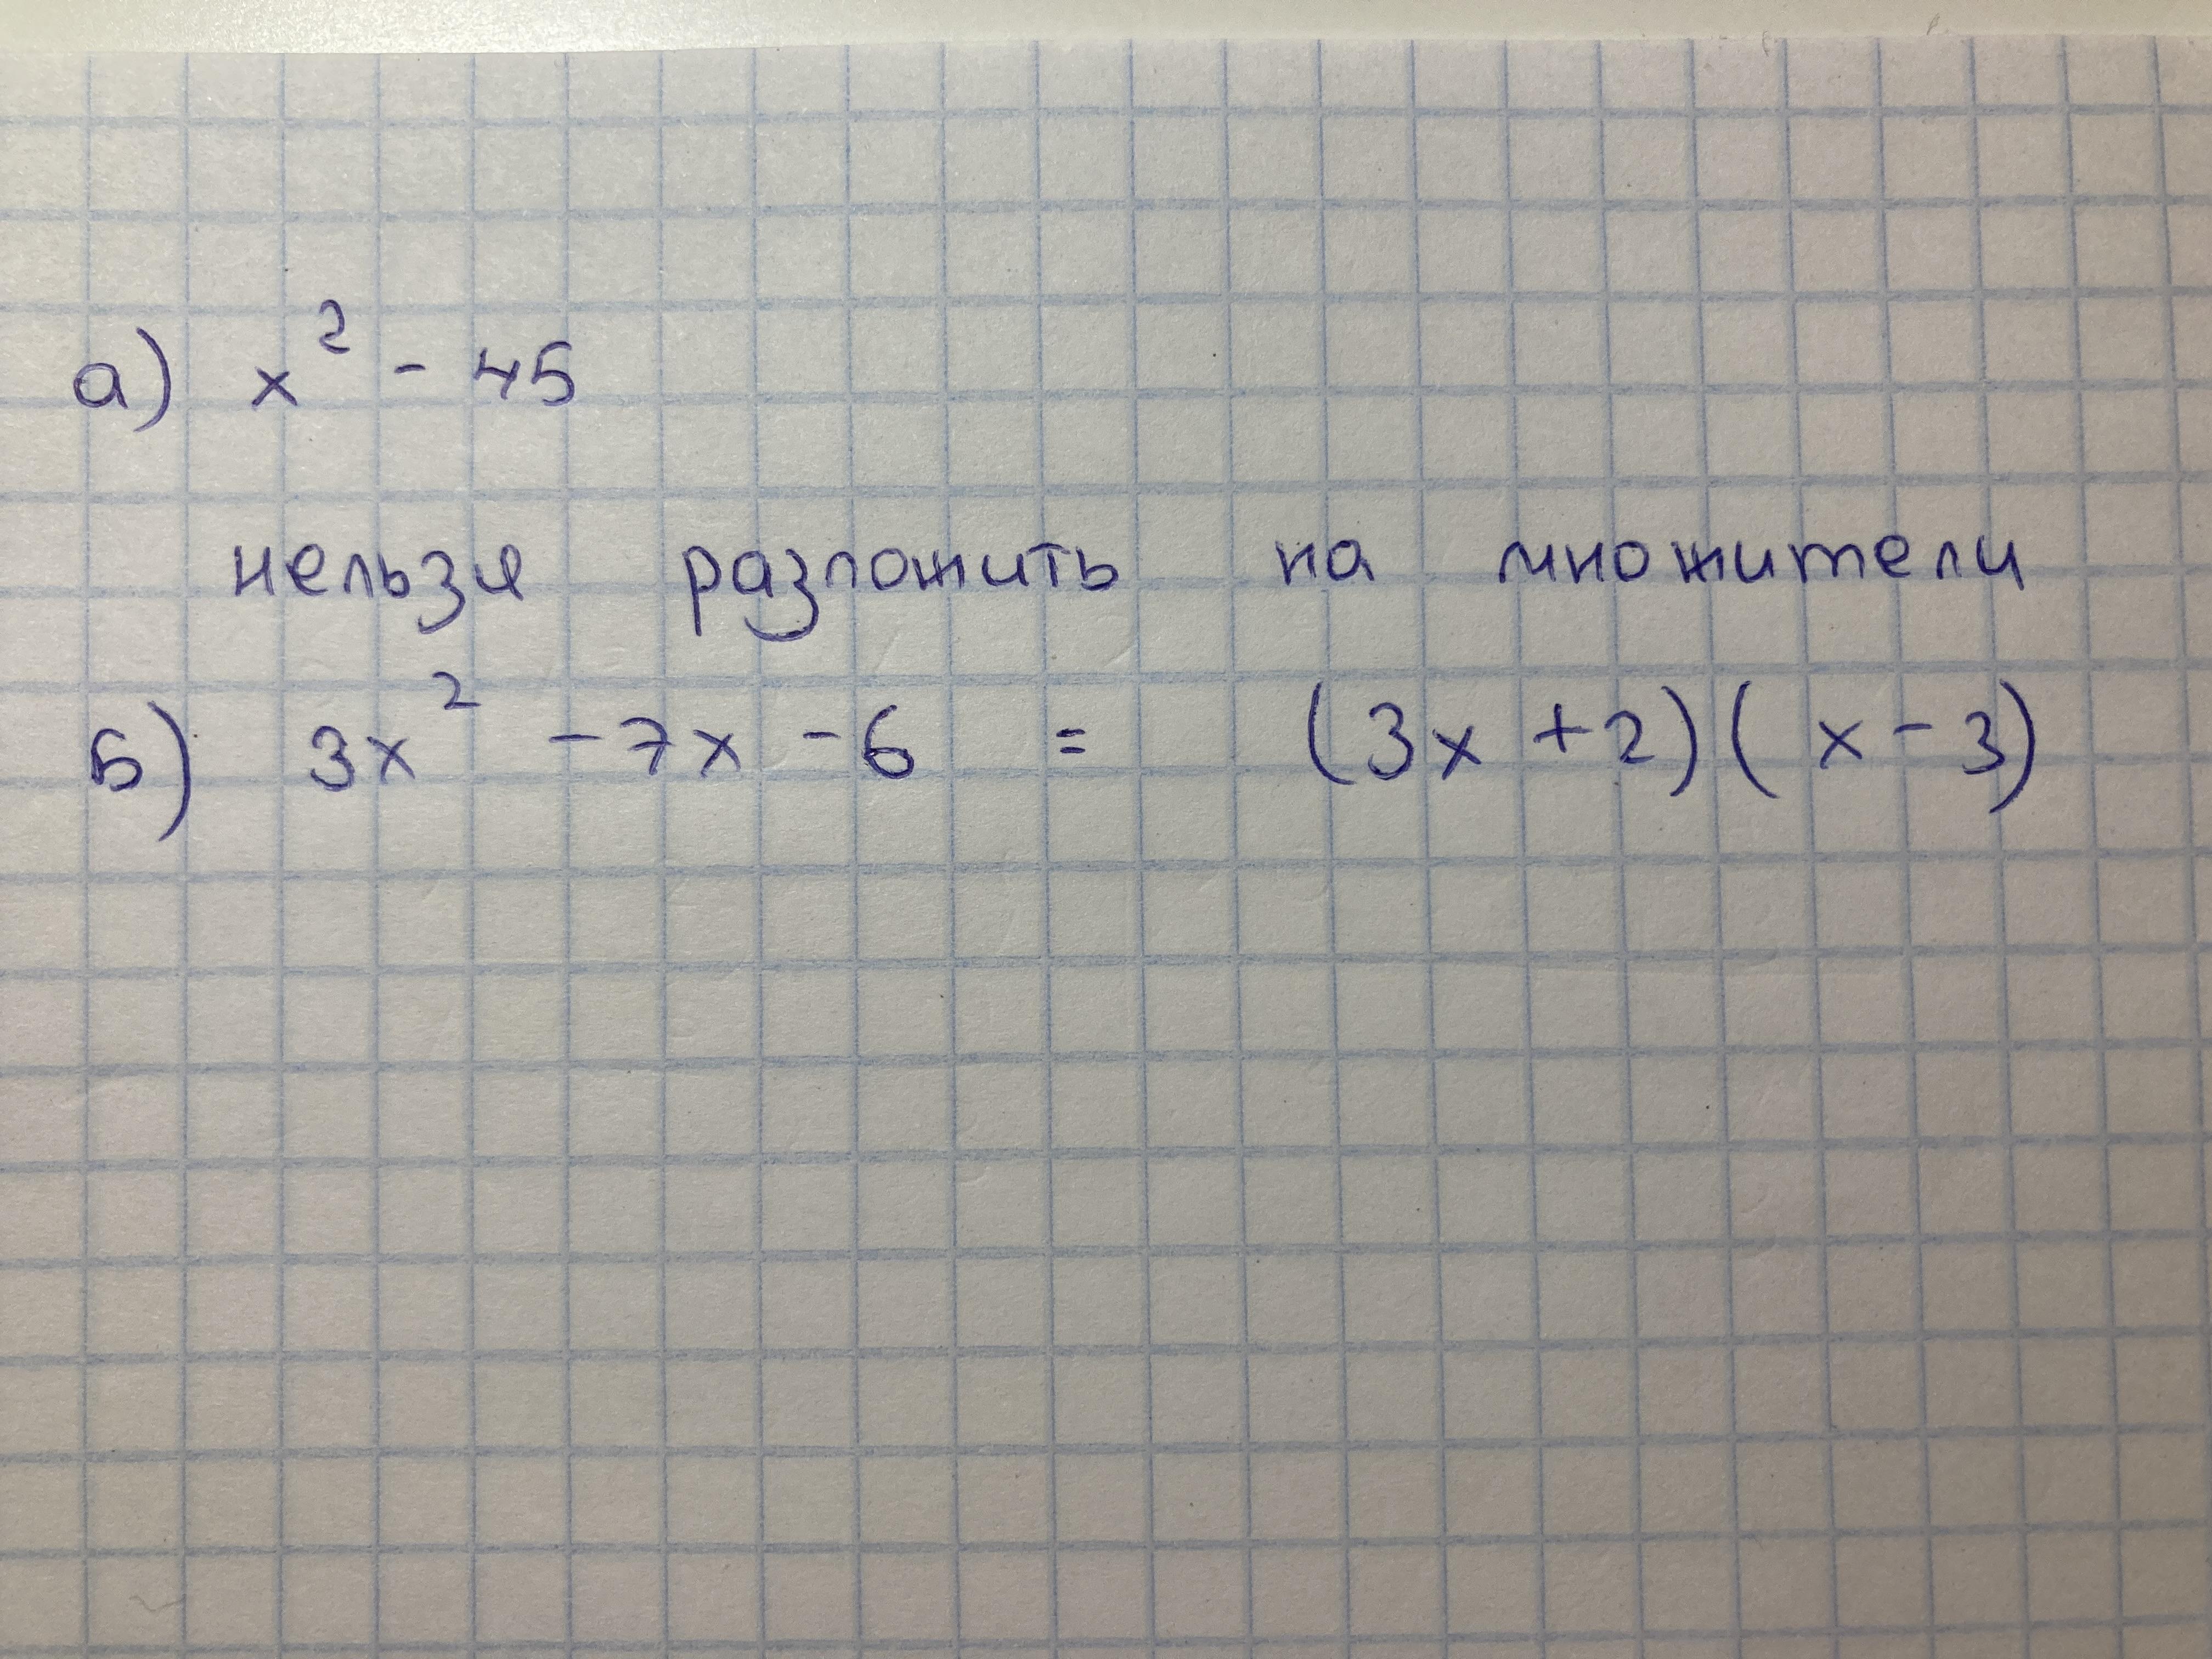 а) x² - 45
нельзя разложить на множители
б) 3x² - 7x - 6 = (3x + 2)(x - 3)